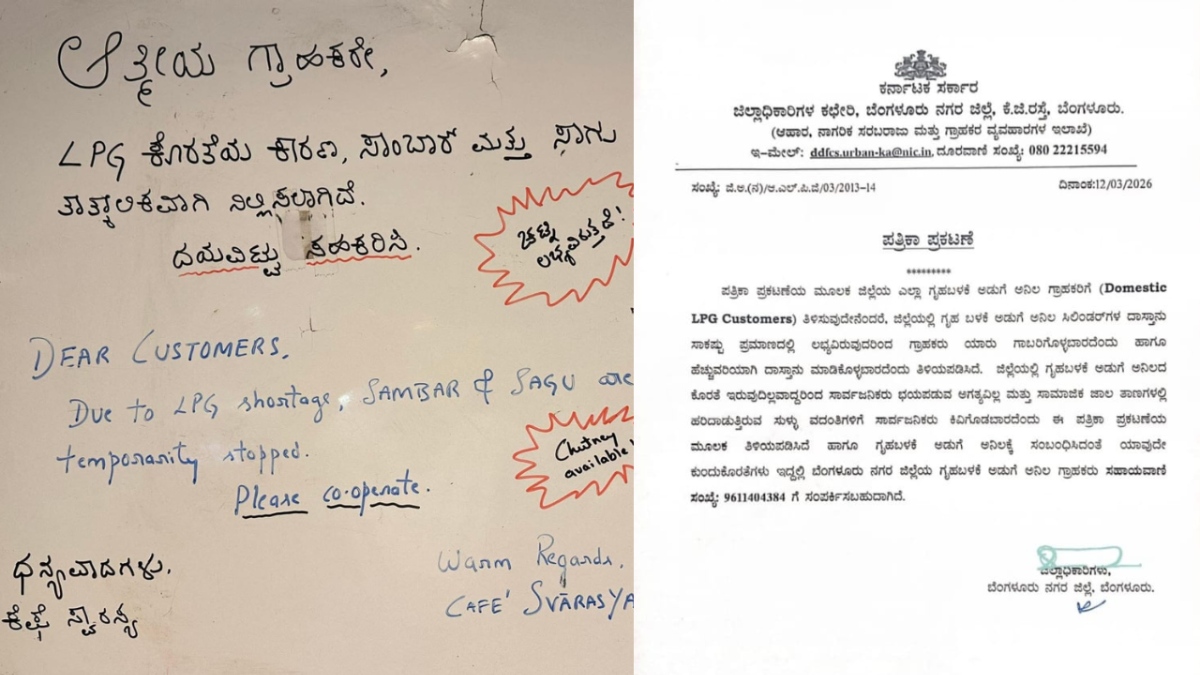 ಆತ್ಮೀಯ ಗ್ರಾಹಕರೇ,
LPG ಕೊರತೆಯ ಕಾರಣ, ಸಾಂಬಾರ್ ಮತ್ತು ಸಾಗು
ತಾತ್ಕಾಲಿಕವಾಗಿ ನಿಲ್ಲಿಸಲಾಗಿದೆ.
ದಯವಿಟ್ಟು ಸಹಕರಿಸಿ.
ಚಟ್ನಿ
ಲಭ್ಯವಿರುತ್ತದೆ!
DEAR CUSTOMERS,
Due to LPG shortage, SAMBAR & SAGU are
temporarity stopped.
Please co-operate.
Chutney
available!
ಧನ್ಯವಾದಗಳು.
ಕೆಫೆ ಸ್ವಾರಸ್ಯ
Warm Regards,
CAFE' SVĀRASYA
ಕರ್ನಾಟಕ ಸರ್ಕಾರ
ಜಿಲ್ಲಾಧಿಕಾರಿಗಳ ಕಛೇರಿ, ಬೆಂಗಳೂರು ನಗರ ಜಿಲ್ಲೆ, ಕೆ.ಜಿ.ರಸ್ತೆ, ಬೆಂಗಳೂರು.
(ಆಹಾರ, ನಾಗರಿಕ ಸರಬರಾಜು ಮತ್ತು ಗ್ರಾಹಕರ ವ್ಯವಹಾರಗಳ ಇಲಾಖೆ)
ಇ-ಮೇಲ್: ddfcs.urban-ka@nic.in, ದೂರವಾಣಿ ಸಂಖ್ಯೆ: 080 22215594
ಸಂಖ್ಯೆ: ಜಿ.ಅ.(ನ)/ಆ.ಎಲ್.ಪಿ.ಜಿ/03/2013-14 ದಿನಾಂಕ:12/03/2026
ಪತ್ರಿಕಾ ಪ್ರಕಟಣೆ
*********
ಪತ್ರಿಕಾ ಪ್ರಕಟಣೆಯ ಮೂಲಕ ಜಿಲ್ಲೆಯ ಎಲ್ಲಾ ಗೃಹಬಳಕೆ ಅಡುಗೆ ಅನಿಲ ಗ್ರಾಹಕರಿಗೆ (Domestic
LPG Customers) ತಿಳಿಸುವುದೇನೆಂದರೆ, ಜಿಲ್ಲೆಯಲ್ಲಿ ಗೃಹ ಬಳಕೆ ಅಡುಗೆ ಅನಿಲ ಸಿಲಿಂಡರ್‌ಗಳ ದಾಸ್ತಾನು
ಸಾಕಷ್ಟು ಪ್ರಮಾಣದಲ್ಲಿ ಲಭ್ಯವಿರುವುದರಿಂದ ಗ್ರಾಹಕರು ಯಾರು ಗಾಬರಿಗೊಳ್ಳಬಾರದೆಂದು ಹಾಗೂ
ಹೆಚ್ಚುವರಿಯಾಗಿ ದಾಸ್ತಾನು ಮಾಡಿಕೊಳ್ಳಬಾರದೆಂದು ತಿಳಿಯಪಡಿಸಿದೆ. ಜಿಲ್ಲೆಯಲ್ಲಿ ಗೃಹಬಳಕೆ ಅಡುಗೆ ಅನಿಲದ
ಕೊರತೆ ಇರುವುದಿಲ್ಲವಾದ್ದರಿಂದ ಸಾರ್ವಜನಿಕರು ಭಯಪಡುವ ಅಗತ್ಯವಿಲ್ಲ ಮತ್ತು ಸಾಮಾಜಿಕ ಜಾಲ ತಾಣಗಳಲ್ಲಿ
ಹರಿದಾಡುತ್ತಿರುವ ಸುಳ್ಳು ವದಂತಿಗಳಿಗೆ ಸಾರ್ವಜನಿಕರು ಕಿವಿಗೊಡಬಾರದೆಂದು ಈ ಪತ್ರಿಕಾ ಪ್ರಕಟಣೆಯ
ಮೂಲಕ ತಿಳಿಯಪಡಿಸಿದೆ ಹಾಗೂ ಗೃಹಬಳಕೆ ಅಡುಗೆ ಅನಿಲಕ್ಕೆ ಸಂಬಂಧಿಸಿದಂತೆ ಯಾವುದೇ
ಕುಂದುಕೊರತೆಗಳು ಇದ್ದಲ್ಲಿ ಬೆಂಗಳೂರು ನಗರ ಜಿಲ್ಲೆಯ ಗೃಹಬಳಕೆ ಅಡುಗೆ ಅನಿಲ ಗ್ರಾಹಕರು ಸಹಾಯವಾಣಿ
ಸಂಖ್ಯೆ: 9611404384 ಗೆ ಸಂಪರ್ಕಿಸಬಹುದಾಗಿದೆ.
ಜಿಲ್ಲಾಧಿಕಾರಿಗಳು,
ಬೆಂಗಳೂರು ನಗರ ಜಿಲ್ಲೆ, ಬೆಂಗಳೂರು.